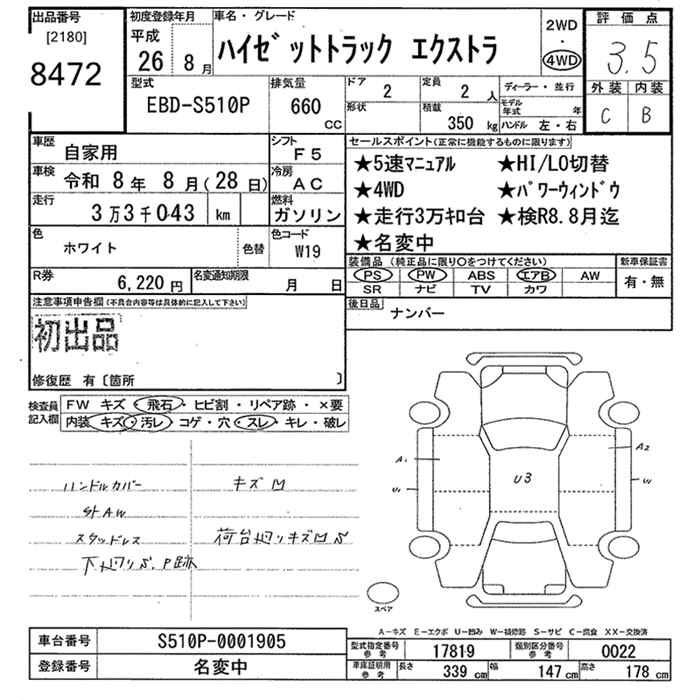 出品番号
[2180]
8472
初度登録年月
平成
26 8月
車名・グレード
ハイゼットトラック エクストラ
2WD
・
4WD
評価点
3.5
外装 内装
C B
型式
EBD-S510P
排気量
660
CC
ドア
2
形状
定員
2人
積載
350 kg
ディーラー・並行
モデル年式 年
ハンドル 左・右
車歴
自家用
シフト
F5
車検
令和 8年 8月(28日)
冷房
AC
走行
3万3千043 km
燃料
ガソリン
色
ホワイト
色替
色コード
W19
R券
6,220円
名変通知期限
月 日
セールスポイント(正常に機能するものに限ります)
★5速マニュアル ★HI/LO切替
★4WD ★パワーウィンドウ
★走行3万キロ台 ★検R8.8月迄
★名変中
装備品(純正品に限り○をつけてください)
PS PW ABS エアB AW
SR ナビ TV カワ
新車保証書
有・無
後日品
ナンバー
注意事項申告欄(不具合内容等は具体的に記入して下さい)
初出品
修復歴 有〔箇所 〕
検査員記入欄
FW キズ・飛石・ヒビ割・リペア跡・×要
内装 キズ・汚レ・コゲ・穴・スレ・キレ・破レ
ハンドルカバー
キズ凹
社外AW
スタッドレス
荷台廻リキズ凹S
下廻リS、P跡
A1
U1
U3
A2
W
スペア
A-キズ E-エクボ U-凹み W-補修跡 S-サビ C-腐食 XX-交換済
車台番号
S510P-0001905
登録番号
名変中
型式指定番号
参考
17819
類別区分番号
参考
0022
車庫証明用
参考
長さ
339 cm
幅
147 cm
高さ
178 cm